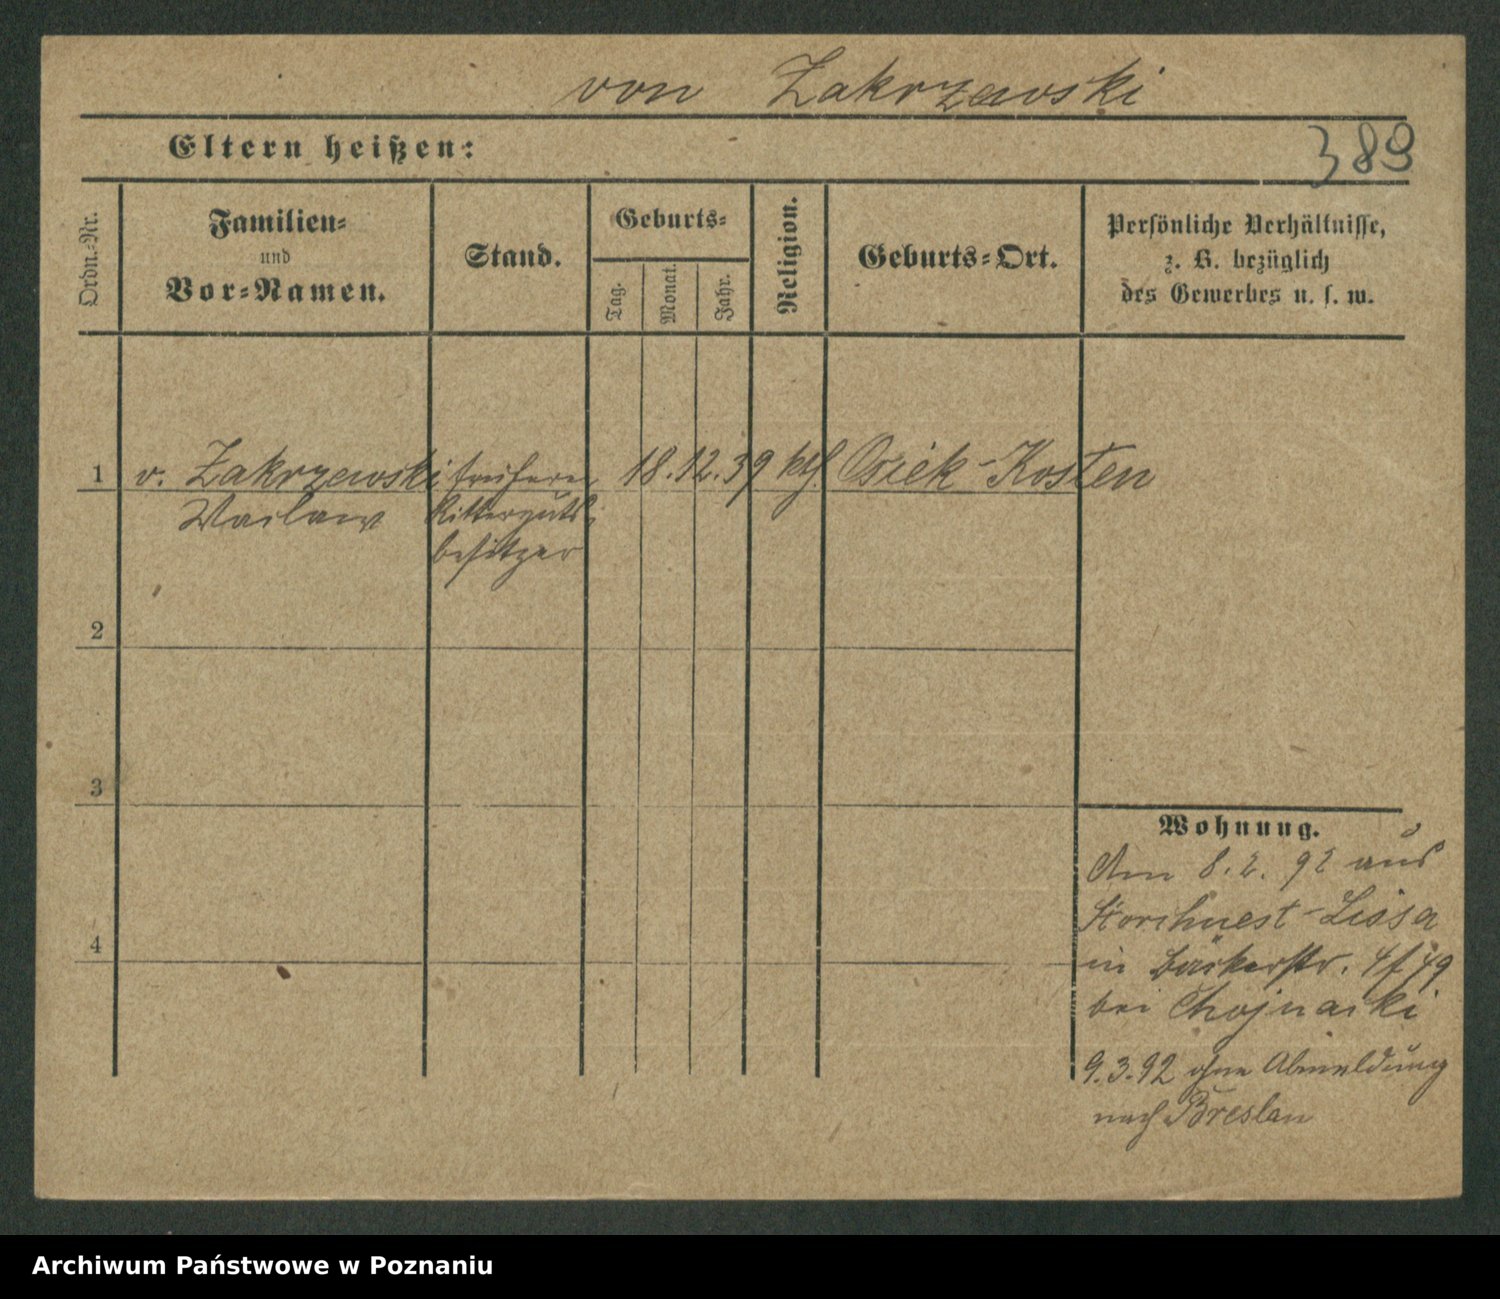 von Zakrzewski
Eltern heißen:
389
Ordn.-Nr.
Familien-
und
Vor-Namen.
Stand.
Geburts-
Tag.
Monat.
Jahr.
Religion.
Geburts-Ort.
Persönliche Verhältnisse,
z. B. bezüglich
des Gewerbes u. s. w.
1 v. Zakrzewski früherer 18. 12. 39 kth. Osiek-Kosten
Waclaw Ritterguts-
besitzer
2
3
Wohnung.
Am 8. 2. 92 aus
Storchnest-Lissa
4
in Bäckerstr.
bei Chojnacki
9. 3. 92 ohne Abmeldung
nach Breslau
Archiwum Państwowe w Poznaniu